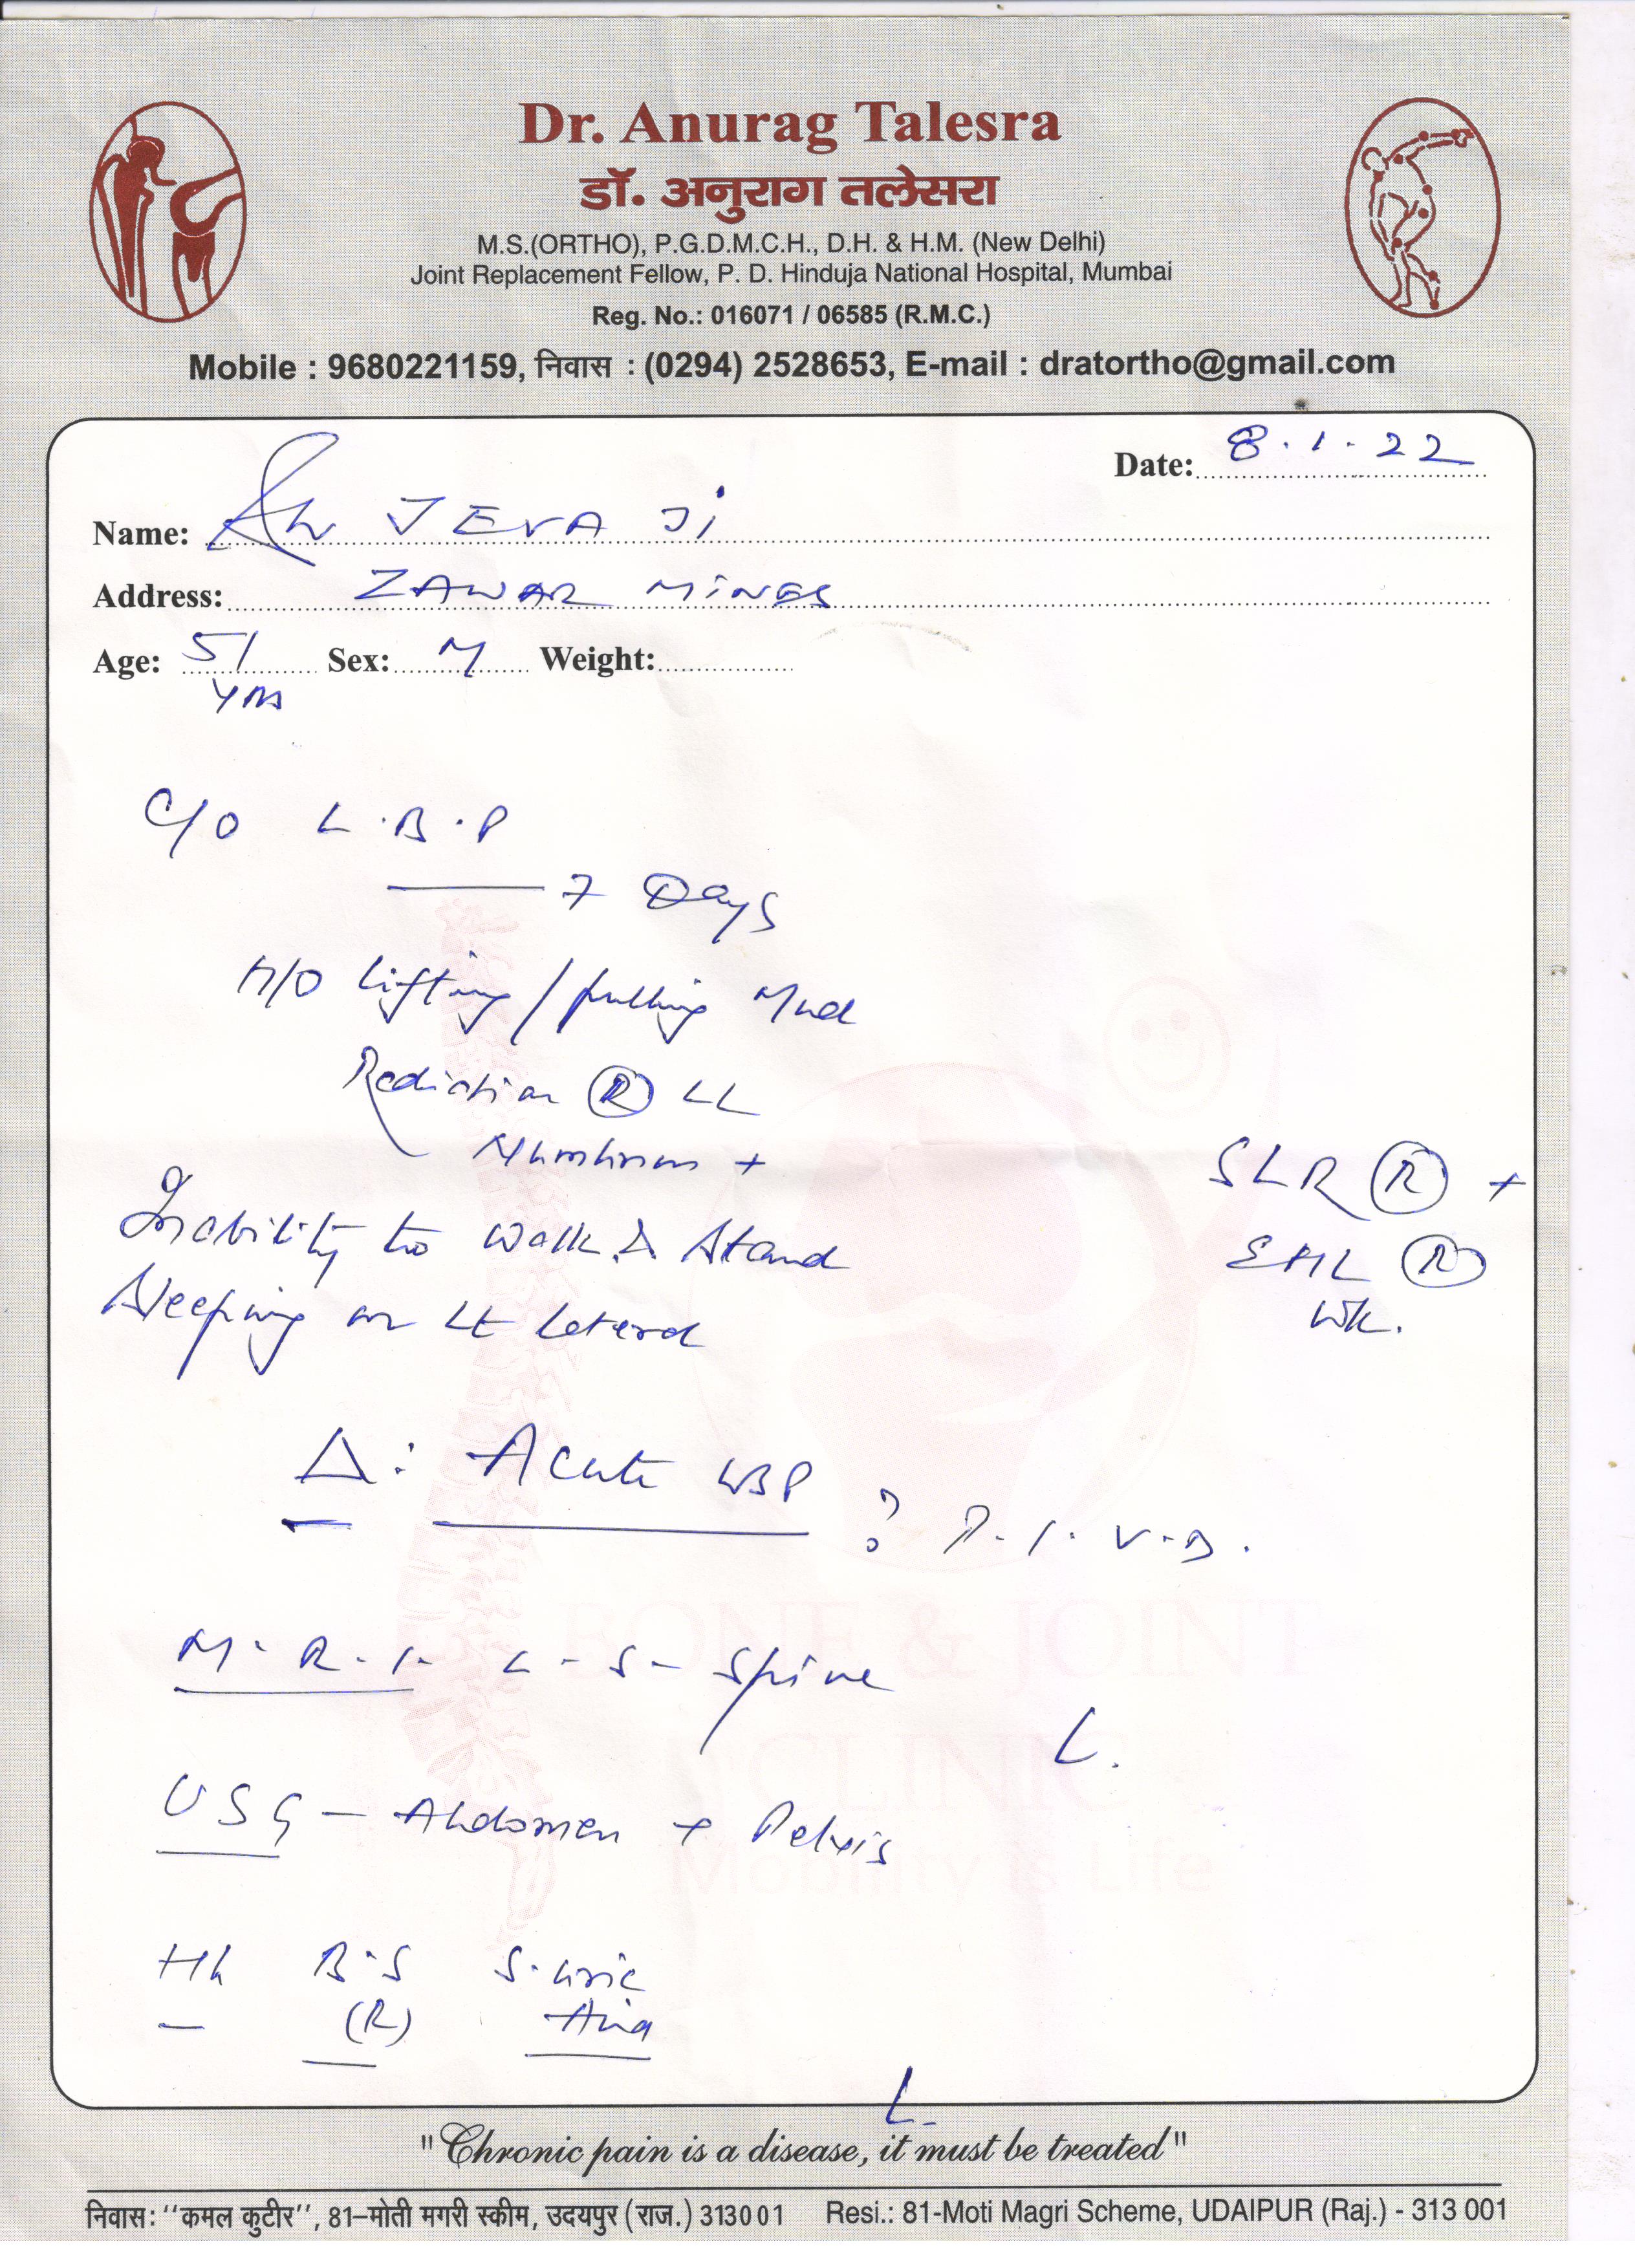 Dr. Anurag Talesra
डॉ. अनुराग तलेसरा
M.S.(ORTHO), P.G.D.M.C.H., D.H. & H.M. (New Delhi)
Joint Replacement Fellow, P. D. Hinduja National Hospital, Mumbai
Reg. No.: 016071 / 06585 (R.M.C.)
Mobile : 9680221159, निवास : (0294) 2528653, E-mail : dratortho@gmail.com
Date: 8.1.22
Name: JEVA Ji
Address: ZAWAR MiNES
Age: 51 Sex: M Weight:
yrs
C/O L.B.P
7 Days
H/O Lifting / pulling Mud
Radiation (R) LL
Numbness +
SLR (R) +
Inability to Walk & Stand
EHL (R)
Wk.
Sleeping on Lt Lateral
Δ: Acute LBP ? P.I.V.D.
M.R.I. L-S- Spine
L.
USG - Abdomen + Pelvis
Hb B.S S. Uric
(R) Acid
L.
BONE & JOINT
CLINIC
Mobility is Life
"Chronic pain is a disease, it must be treated"
निवास: ''कमल कुटीर'', 81-मोती मगरी स्कीम, उदयपुर (राज.) 313001 Resi.: 81-Moti Magri Scheme, UDAIPUR (Raj.) - 313 001